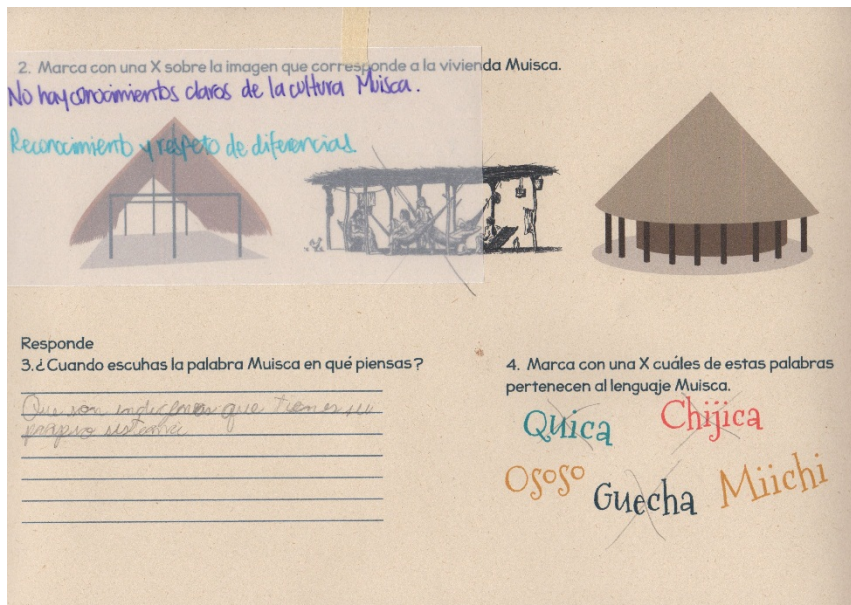 2. Marca con una X sobre la imagen que corresponde a la vivienda Muisca.
No hay conocimientos claros de la cultura Muisca.
Reconocimiento y respeto de diferencias.
Responde
3.¿Cuando escuhas la palabra Muisca en qué piensas?
Que son indigenas que tienen su
propio sistema
4. Marca con una X cuáles de estas palabras
pertenecen al lenguaje Muisca.
Quica
Chijica
Ososo
Guecha
Miichi